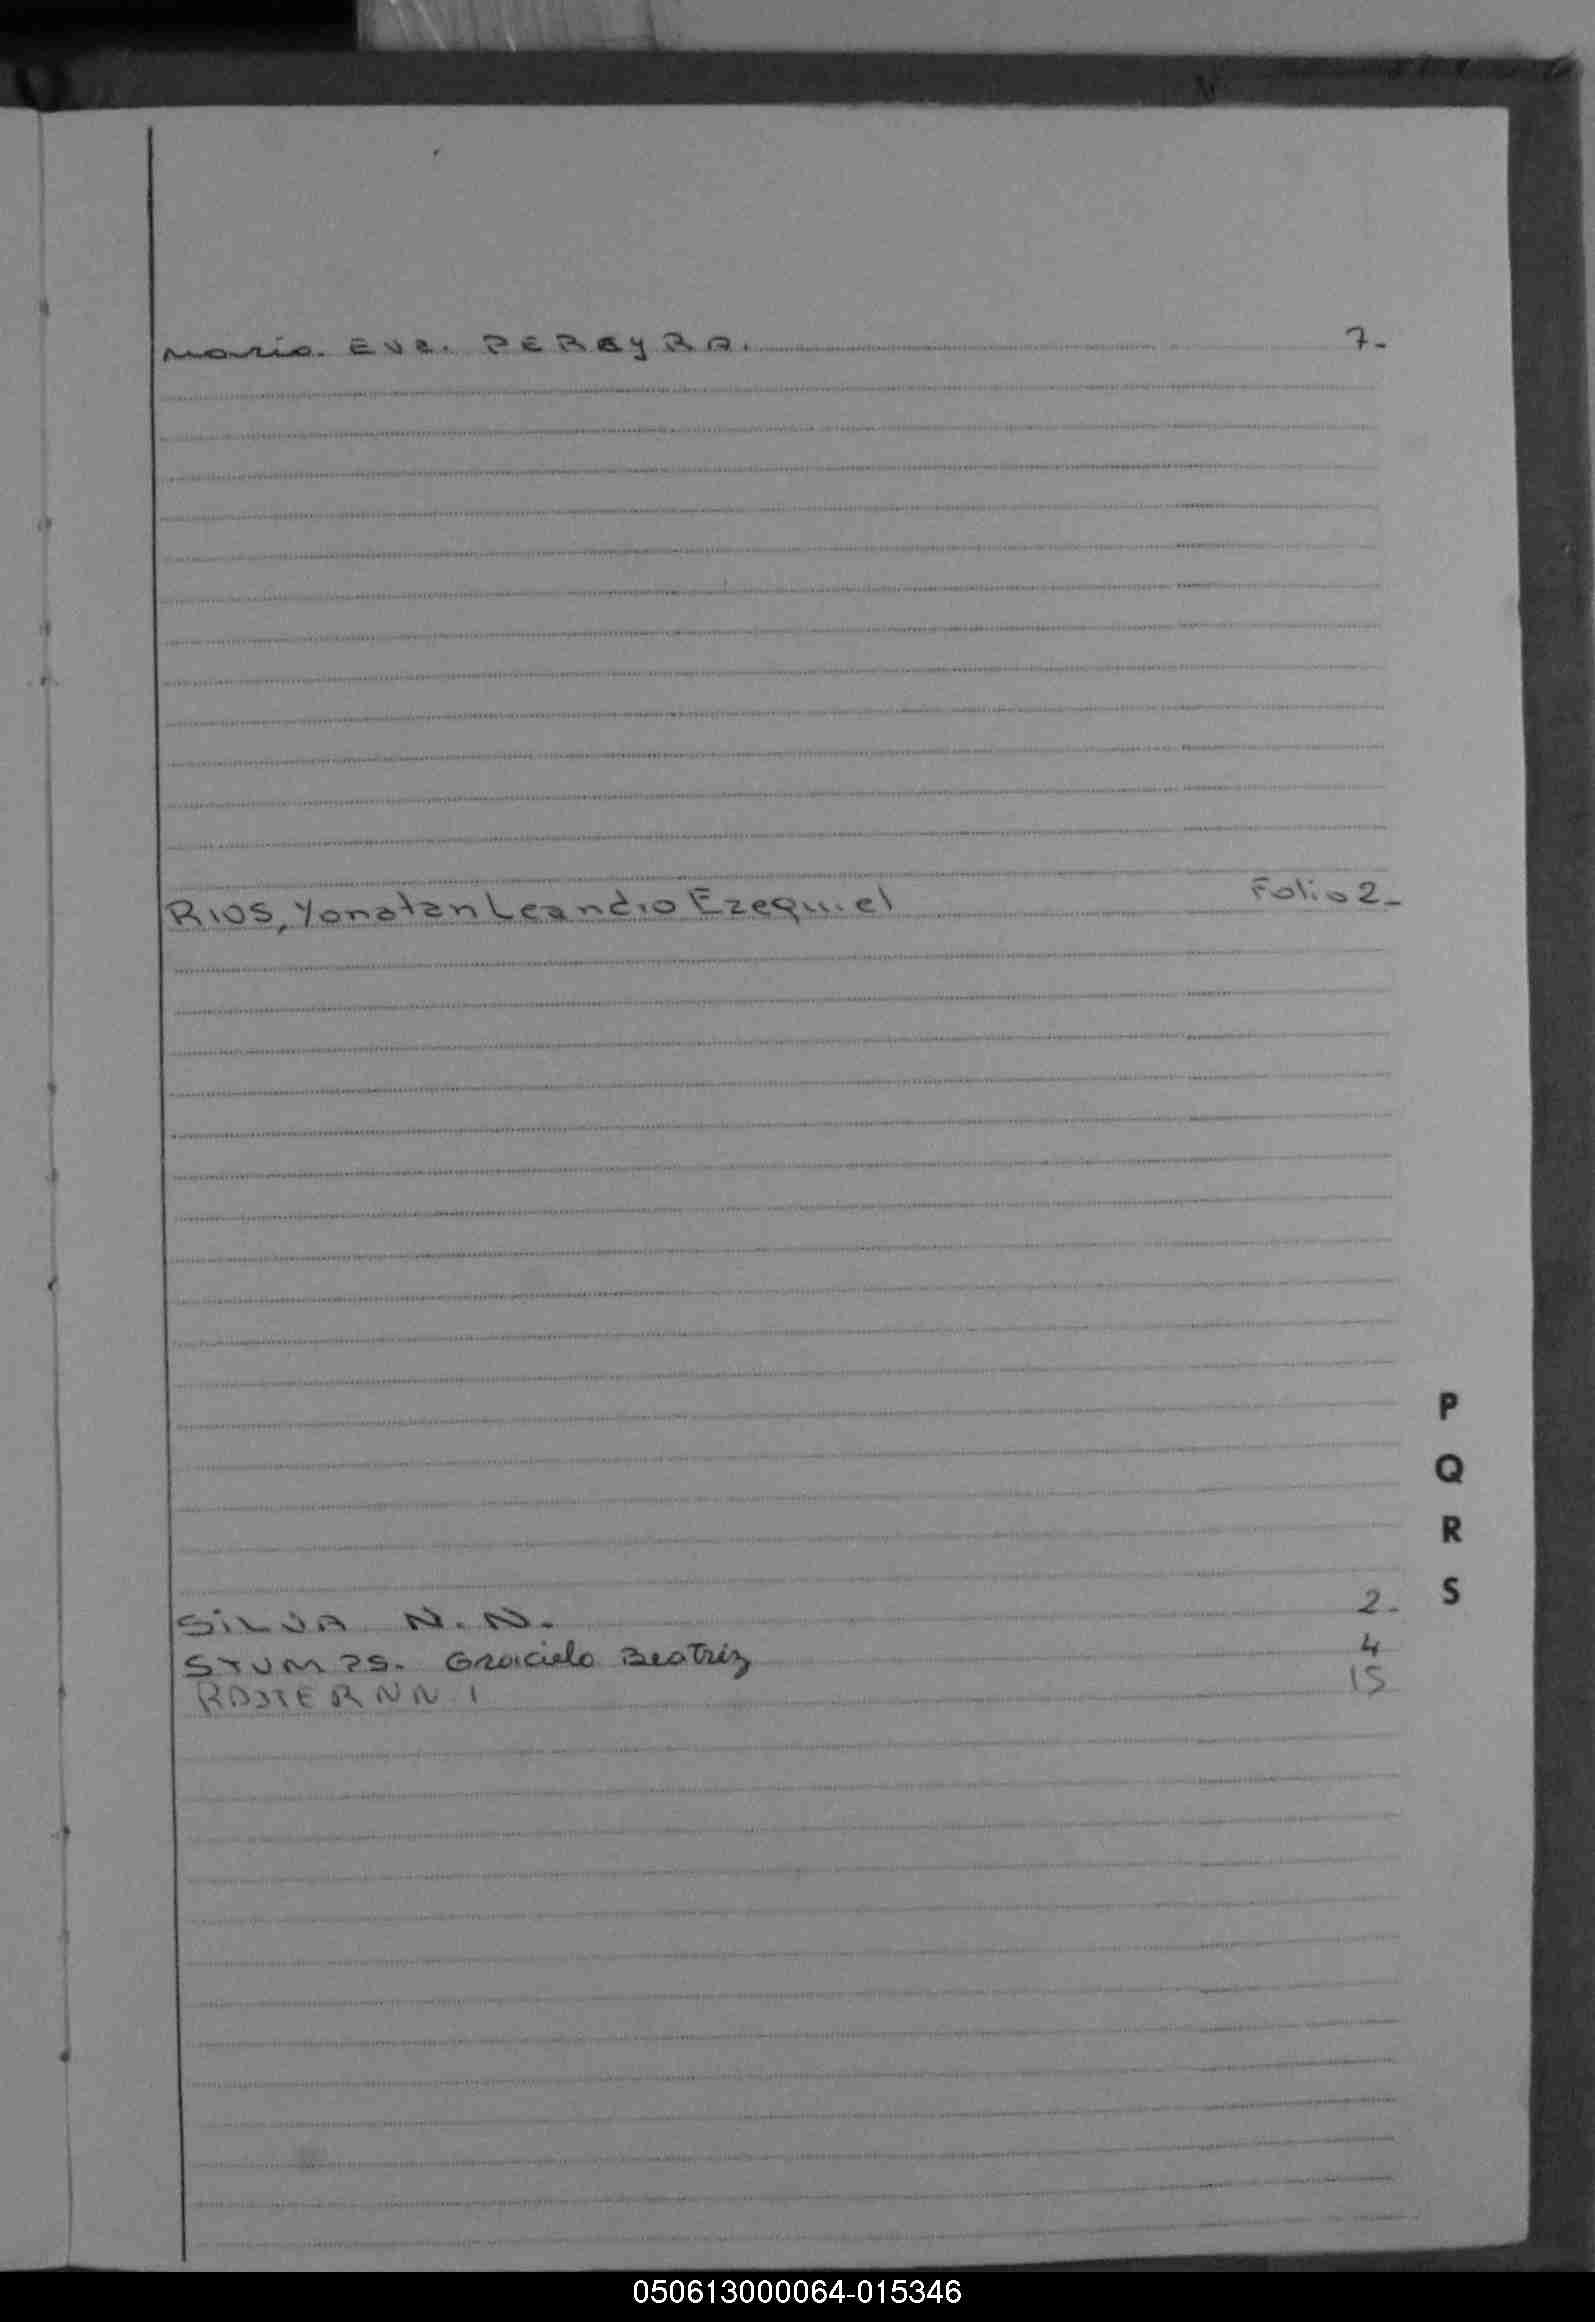 Maria. Eva. PEREYRA. 7-
RIOS, Yonatan Leandro Ezequiel Folio 2-
P
Q
R
S
SILVA N.N. 2-
STUMPS. Graciela Beatriz 4
N N 15
050613000064-015346